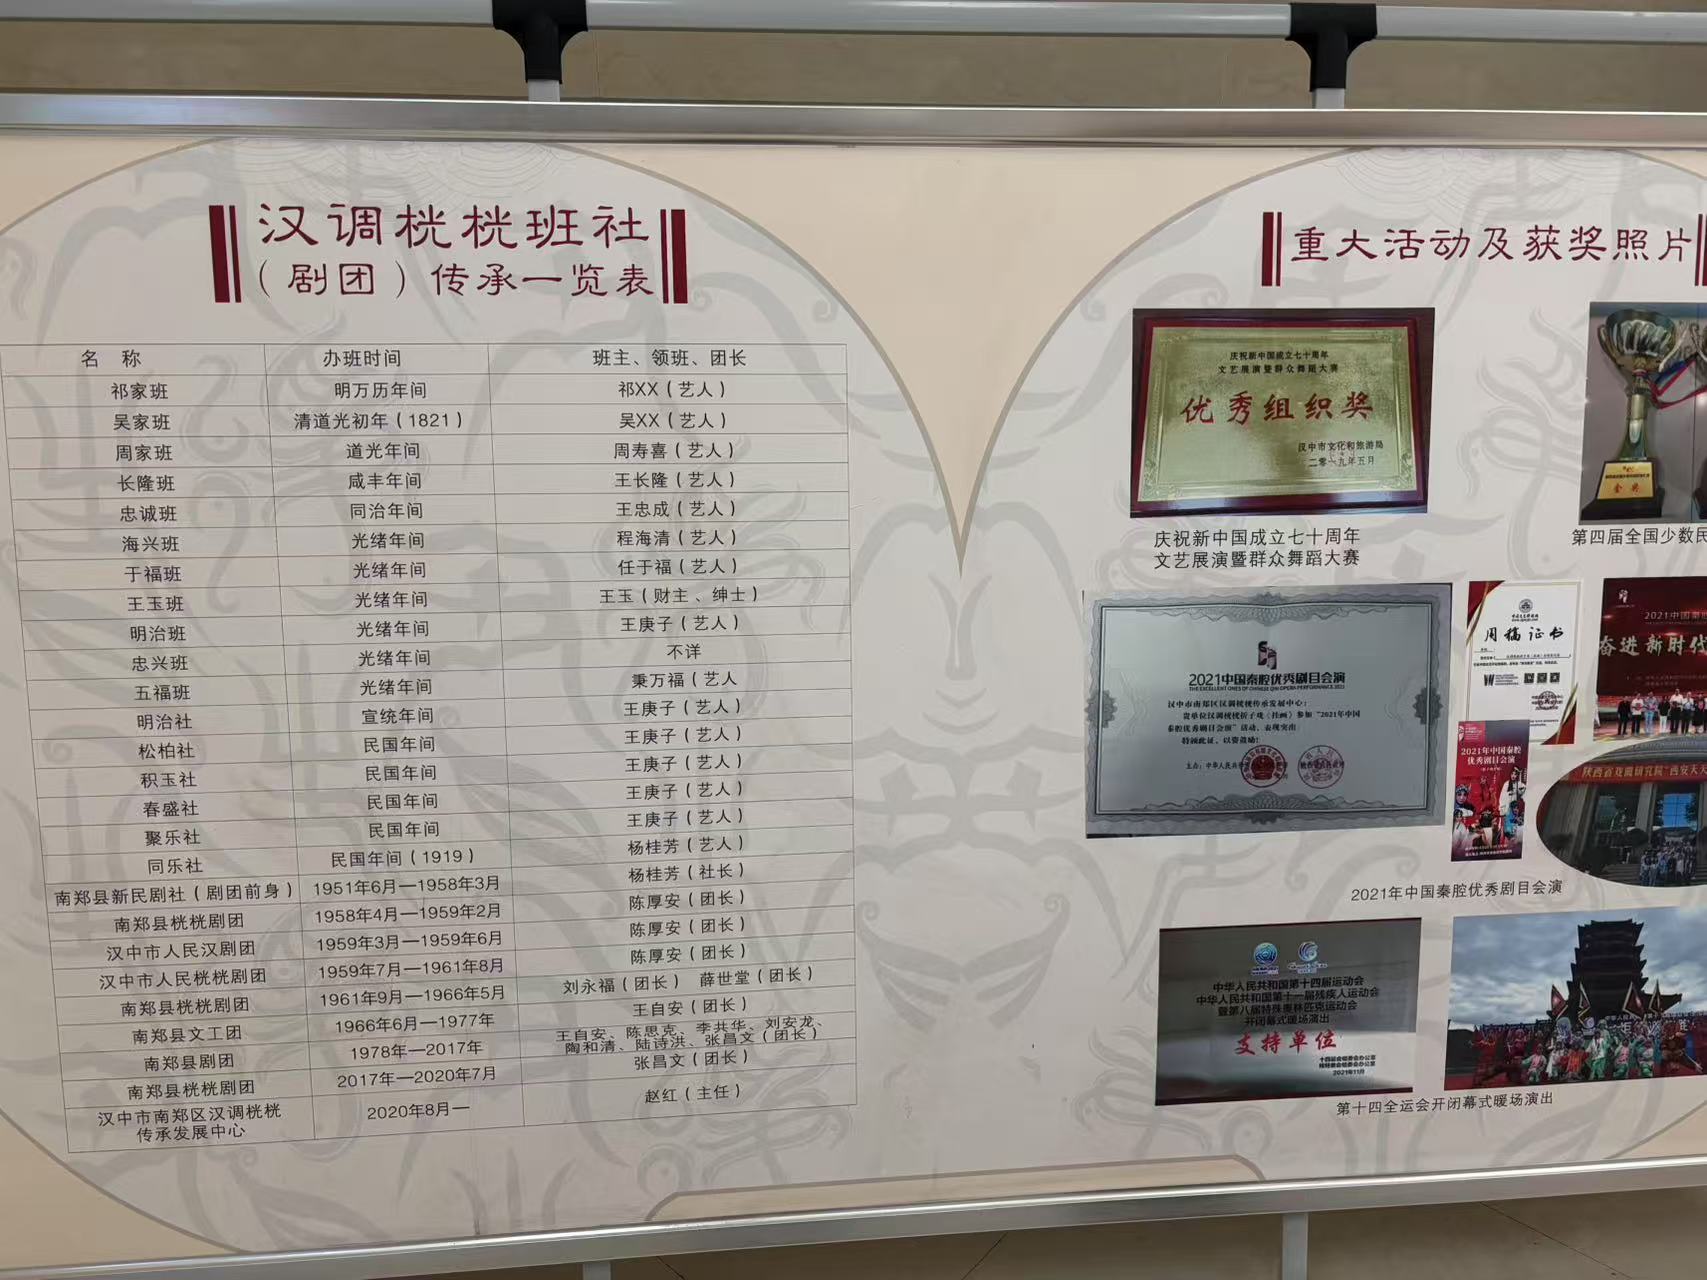 汉调桄桄班社
（剧团）传承一览表
名 称 办班时间 班主、领班、团长
祁家班 明万历年间 祁XX（艺人）
吴家班 清道光初年（1821） 吴XX（艺人）
周家班 道光年间 周寿喜（艺人）
长隆班 咸丰年间 王长隆（艺人）
忠诚班 同治年间 王忠成（艺人）
海兴班 光绪年间 程海清（艺人）
于福班 光绪年间 任于福（艺人）
王玉班 光绪年间 王玉（财主、绅士）
明治班 光绪年间 王庚子（艺人）
忠兴班 光绪年间 不详
五福班 光绪年间 秉万福（艺人
明治社 宣统年间 王庚子（艺人）
松柏社 民国年间 王庚子（艺人）
积玉社 民国年间 王庚子（艺人）
春盛社 民国年间 王庚子（艺人）
聚乐社 民国年间 王庚子（艺人）
同乐社 民国年间（1919） 杨桂芳（艺人）
南郑县新民剧社（剧团前身） 1951年6月—1958年3月 杨桂芳（社长）
南郑县桄桄剧团 1958年4月—1959年2月 陈厚安（团长）
汉中市人民汉剧团 1959年3月—1959年6月 陈厚安（团长）
汉中市人民桄桄剧团 1959年7月—1961年8月 陈厚安（团长）
南郑县桄桄剧团 1961年9月—1966年5月 刘永福（团长） 薛世堂（团长）
南郑县文工团 1966年6月—1977年 王自安（团长）
南郑县剧团 1978年—2017年 王自安、陈思克、李共华、刘安龙、
陶和清、陆诗洪、张昌文（团长）
南郑县桄桄剧团 2017年—2020年7月 张昌文（团长）
汉中市南郑区汉调桄桄
传承发展中心 2020年8月— 赵红（主任）
重大活动及获奖照片
庆祝新中国成立七十周年
文艺展演暨群众舞蹈大赛
优秀组织奖
汉中市文化和旅游局
二零一九年五月
庆祝新中国成立七十周年
文艺展演暨群众舞蹈大赛
金奖
第四届全国少数民
2021中国秦腔优秀剧目会演
THE EXCELLENT ONES OF CHINESE QIN OPERA PERFORMANCE 2021
汉中市南郑区汉调桄桄传承发展中心：
贵单位汉调桄桄折子戏《挂画》参加“2021年中国
秦腔优秀剧目会演”活动，表现突出
特颁此证，以资鼓励！
主办：中华人民共
用稿证书
2021年中国秦腔
优秀剧目会演
2021中国秦
奋进新时代
陕西省戏曲研究院 西安天天
2021年中国秦腔优秀剧目会演
中华人民共和国第十四届运动会
中华人民共和国第十一届残疾人运动会
暨第八届特殊奥林匹克运动会
开闭幕式暖场演出
支持单位
十四运会组委会办公室
残特奥会组委会办公室
2021年11月
第十四全运会开闭幕式暖场演出